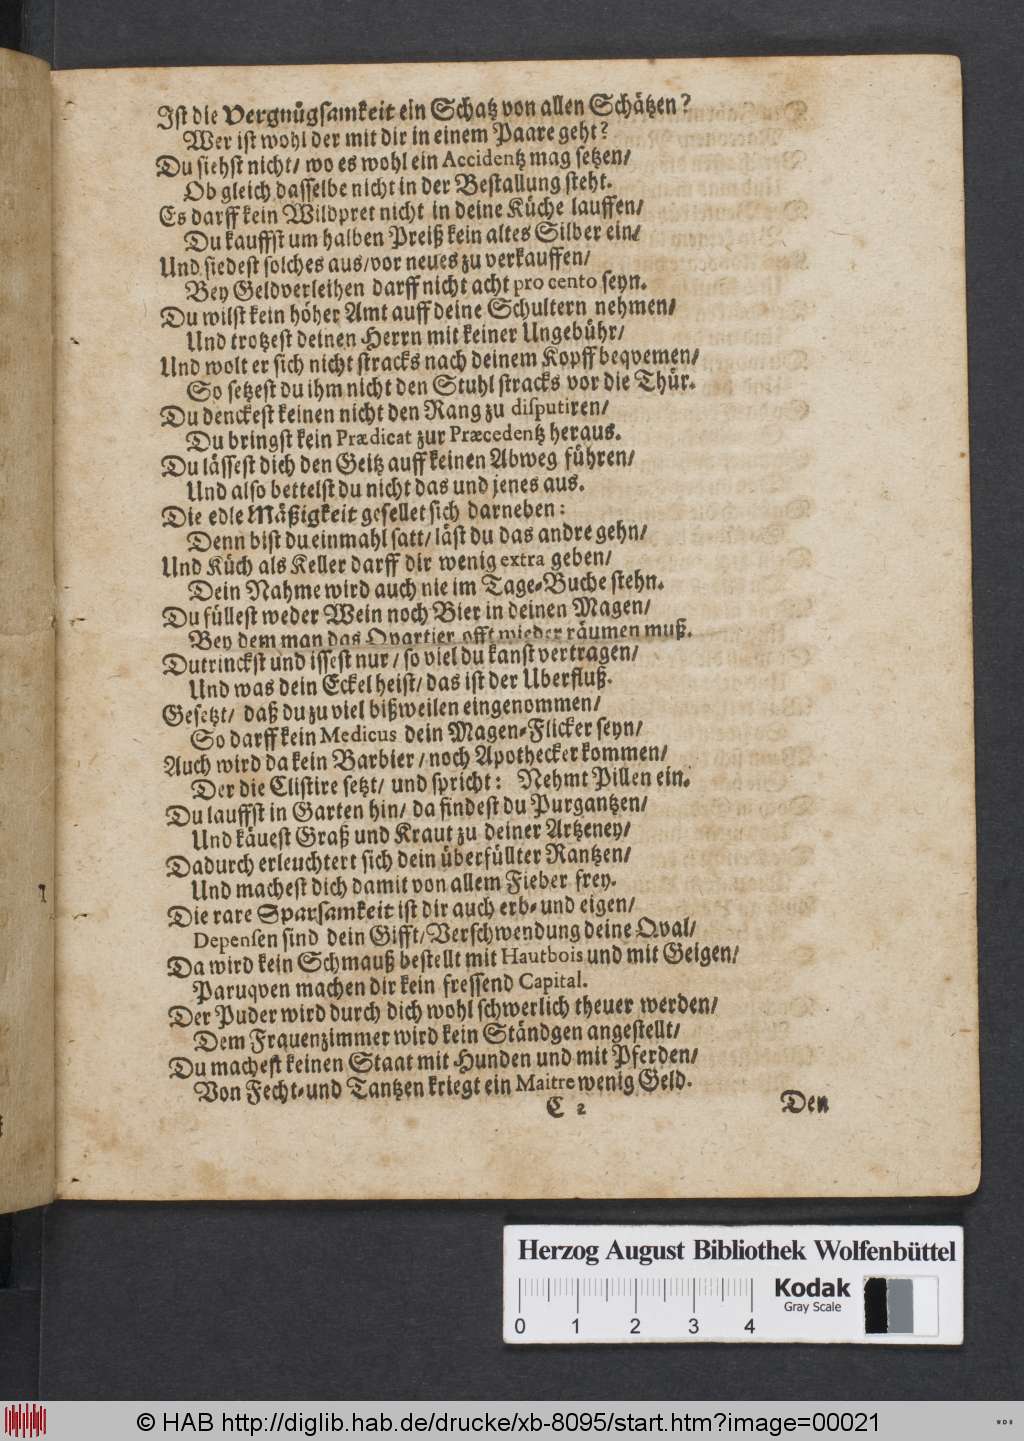 Ist die Vergnügsamkeit ein Schatz von allen Schätzen?
Wer ist wohl der mit dir in einem Paare geht?
Du siehst nicht/ wo es wohl ein Accidentz mag setzen/
Ob gleich dasselbe nicht in der Bestallung steht.
Es darff kein Wildpret nicht in deine Küche lauffen/
Du kauffst um halben Preiß kein altes Silber ein/
Und siedest solches aus/ vor neues zu verkauffen/
Bey Geldverleihen darff nicht acht pro cento seyn.
Du wilst kein höher Amt auff deine Schultern nehmen/
Und trotzest deinen Herrn mit keiner Ungebühr/
Und wolt er sich nicht stracks nach deinem Kopff beqvemen/
So setzest du ihm nicht den Stuhl stracks vor die Thür.
Du denckest keinen nicht den Rang zu disputiren/
Du bringst kein Prædicat zur Præcedentz heraus.
Du lässest dich den Geitz auff keinen Abweg führen/
Und also bettelst du nicht das und jenes aus.
Die edle Mäßigkeit gesellet sich darneben:
Denn bist du einmahl satt/ läst du das andre gehn/
Und Küch als Keller darff dir wenig extra geben/
Dein Nahme wird auch nie im Tage-Buche stehn.
Du füllest weder Wein noch Bier in deinen Magen/
Bey dem man das Qvartier offt wieder räumen muß.
Du trinckst und issest nur/ so viel du kanst vertragen/
Und was dein Eckel heist/ das ist der Uberfluß.
Gesetzt/ daß du zu viel bißweilen eingenommen/
So darff kein Medicus dein Magen-Flicker seyn/
Auch wird da kein Barbier/ noch Apothecker kommen/
Der die Clistire setzt/ und spricht: Nehmt Pillen ein.
Du lauffst in Garten hin/ da findest du Purgantzen/
Und käuest Graß und Kraut zu deiner Artzeney/
Dadurch erleuchtert sich dein überfüllter Rantzen/
Und machest dich damit von allem Fieber frey.
Die rare Sparsamkeit ist dir auch erb- und eigen/
Depensen sind dein Gifft/ Verschwendung deine Qval/
Da wird kein Schmauß bestellt mit Hautbois und mit Geigen/
Paruqven machen dir kein fressend Capital.
Der Puder wird durch dich wohl schwerlich theuer werden/
Dem Frauenzimmer wird kein Ständgen angestellt/
Du machest keinen Staat mit Hunden und mit Pferden/
Von Fecht- und Tantzen kriegt ein Maitre wenig Geld.
C 2 Den
Herzog August Bibliothek Wolfenbüttel
Kodak
Gray Scale
0 1 2 3 4
© HAB http://diglib.hab.de/drucke/xb-8095/start.htm?image=00021